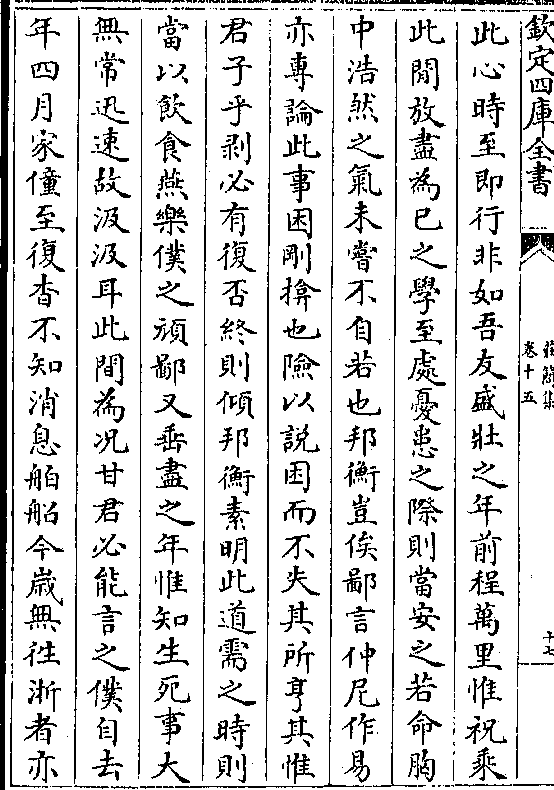 欽定四庫全書
卷十五
十七
此心時至即行非如吾友盛壯之年前程萬里惟祝乘
此閒放盡為己之學至處憂患之際則當安之若命胸
中浩然之氣未嘗不自若也邦衡豈俟鄙言仲尼作易
亦專論此事困剛揜也險以説困而不失其所亨其惟
君子乎剥必有復否終則傾邦衡素明此道需之時則
當以飲食燕樂僕之頑鄙又垂盡之年惟知生死事大
無常迅速故汲汲耳此間為况甘君必能言之僕自去
年四月家僮至復杳不知消息舶船今歲無徃浙者亦